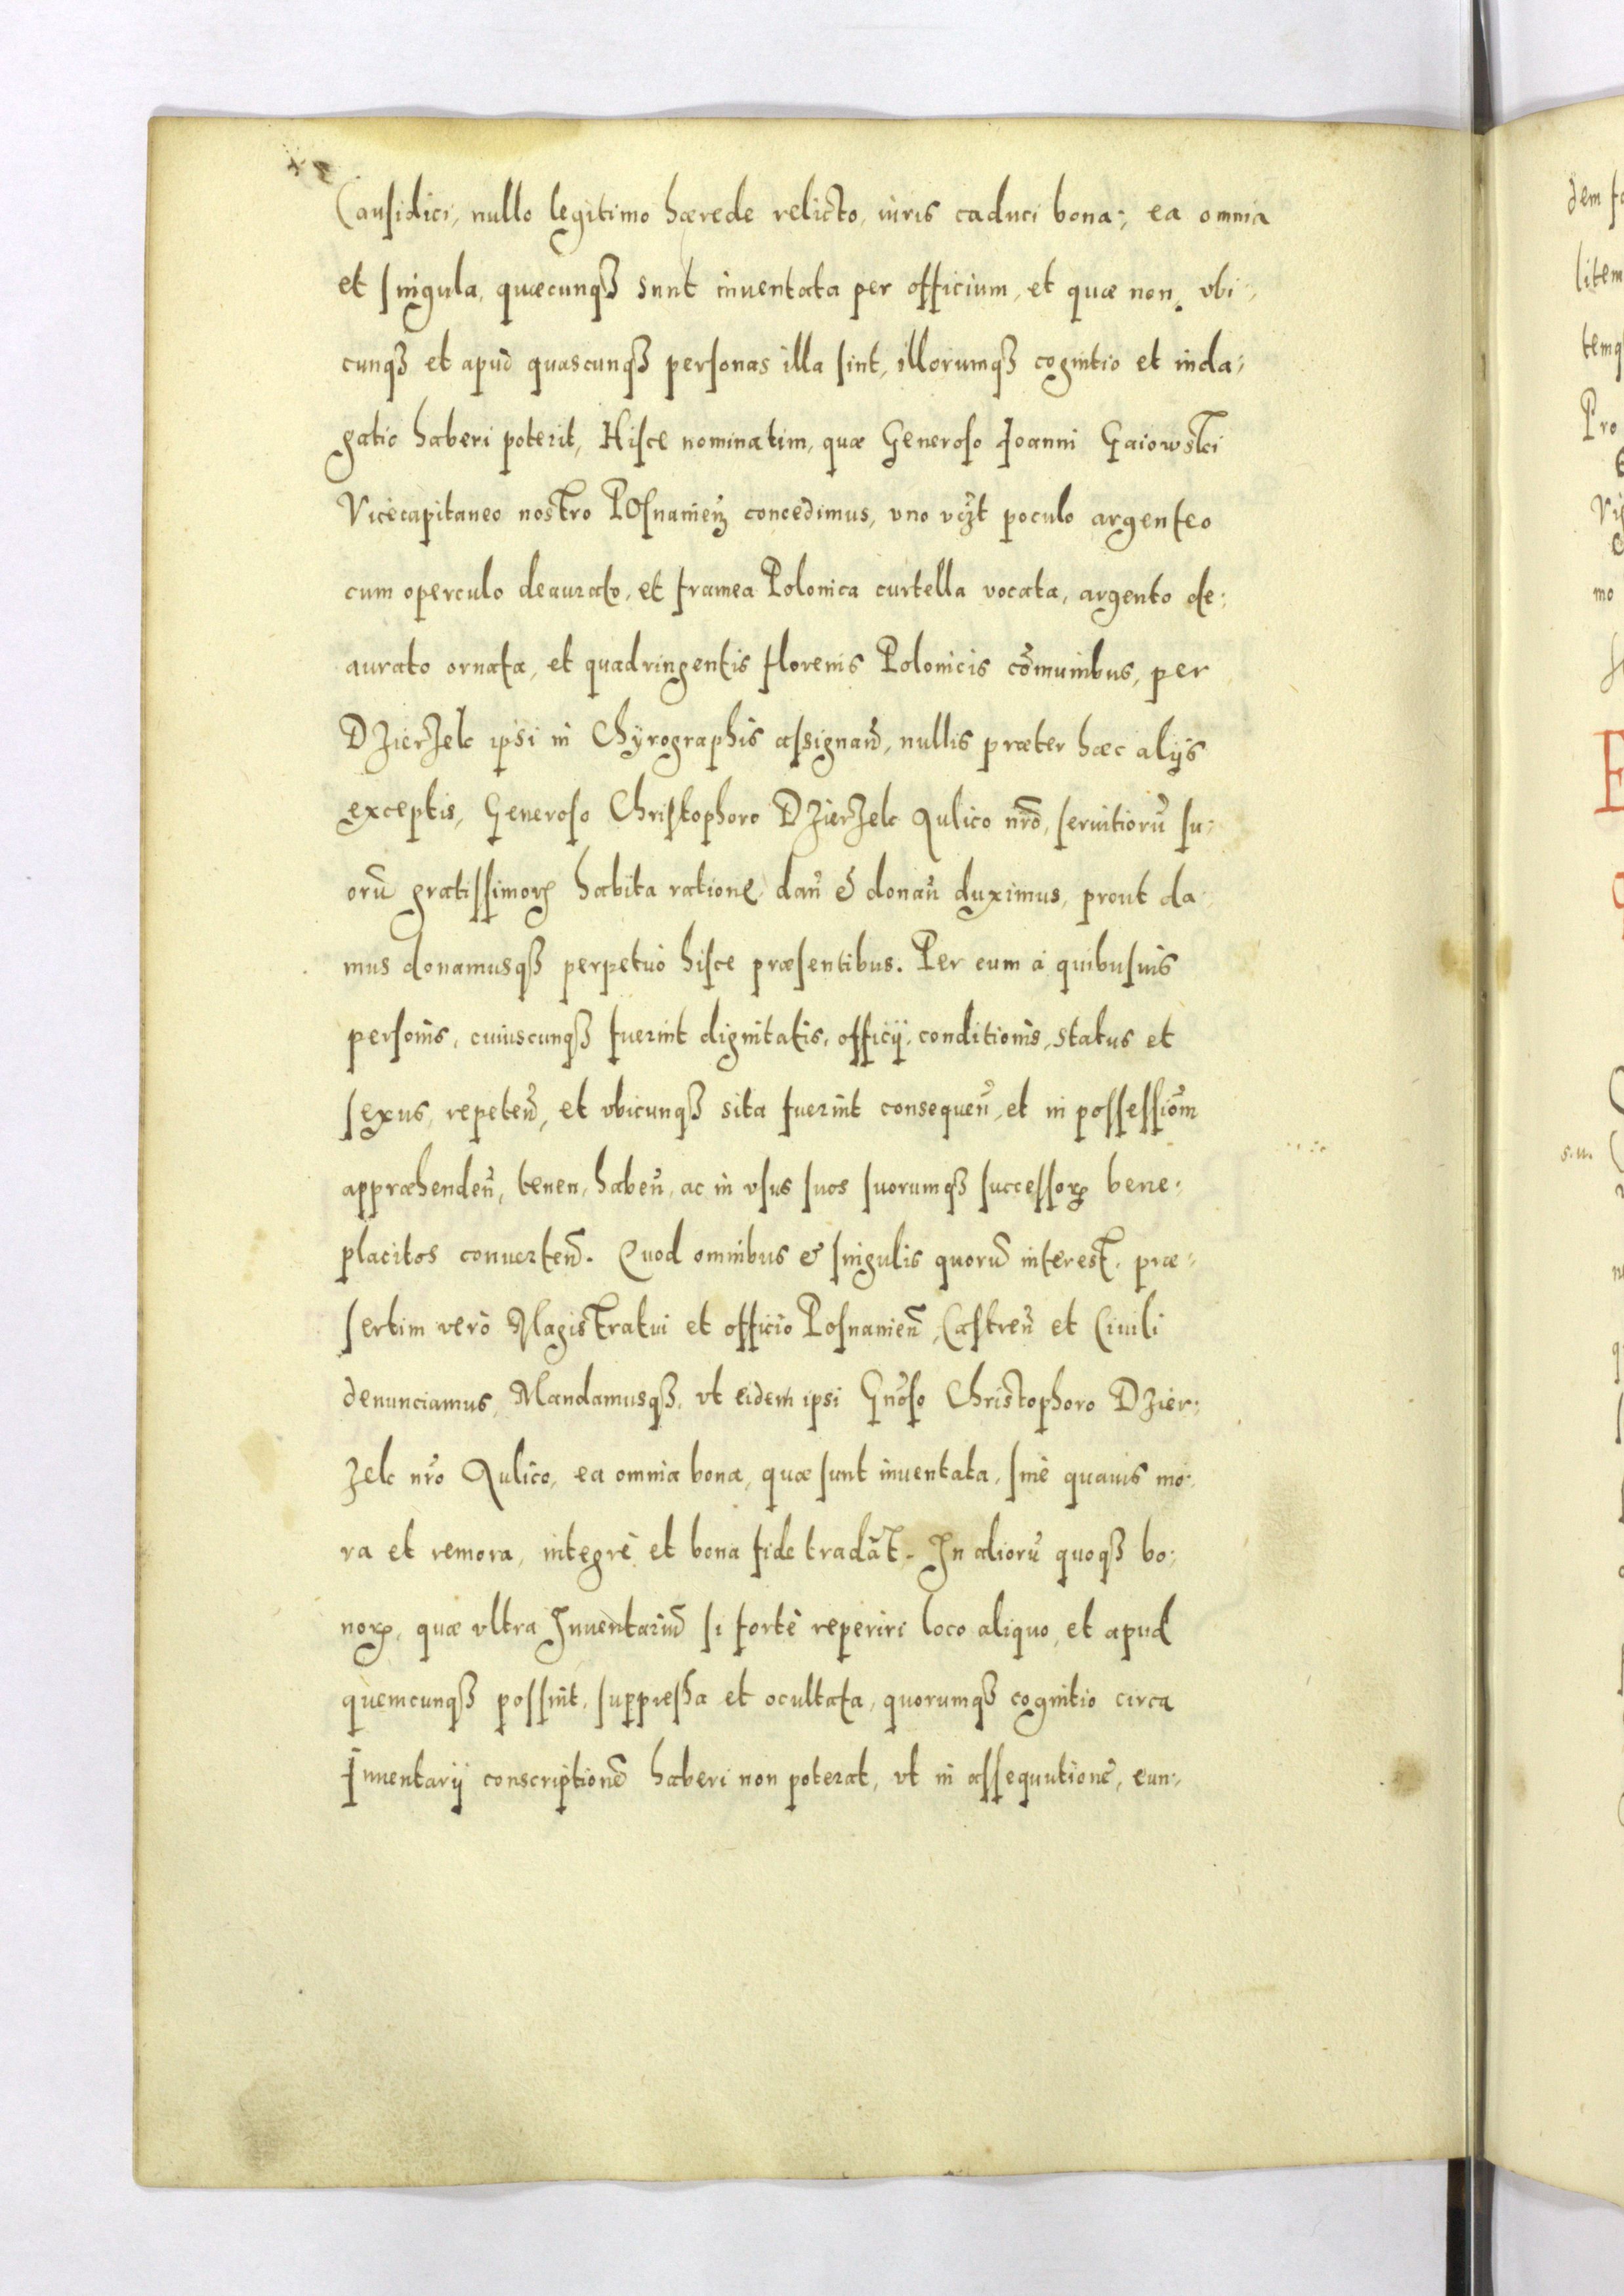 Causidici, nullo legitimo hærede relicto, iuris caduci bona; ea omnia
et singula, quæcunqȝ sunt inuentata per officium, et quæ non, vbi-
cunqȝ et apud quascunqȝ personas illa sint, illorumqȝ cognitio et inda-
gatio haberi poterit, Hisce nominatim, quæ Generoso Joanni Gaiowski
Vicecapitaneo nostro Posnanień concedimus, vno vczt poculo argenteo
cum operculo deaurato, et framea Polonica curtella vocata, argento de-
aurato ornata, et quadringentis florenis Polonicis cōmunibus, per
Dzierzek ipsi in Chyrographis assignań, nullis præter hæc alijs
exceptis, Generoso Christophoro Dzierzek Aulico nrō, seruitiorū su-
orū gratissimorꝝ habita ratione, dań & donań duximus, prout da-
mus donamusqȝ perpetuò hisce præsentibus. Per eum à quibusuis
personis, cuiuscunqȝ fuerint dignitatis, officij, conditionis, status et
sexus, repeteń, et vbicunqȝ sita fuerint consequeń, et in possessiōm
appræhendeń, tenen, habeń, ac in vsus suos suorumqȝ successorꝝ bene-
placitos conuerteń. Quod omnibus & singulis quorū interest, præ-
sertim verò Magistratui et officio Posnanień, Castreń et Ciuili
denunciamus, Mandamusqȝ, vt eidem ipsi Gnōso Christophoro Dzier-
zek nrō Aulico, ea omnia bona, quæ sunt inuentata, sine quauis mo-
ra et remora, integrè et bona fide tradāt. In aliorū quoqȝ bo-
norꝝ, quæ vltra Inuentariū si fortè reperiri loco aliquo, et apud
quemcunqȝ possint, suppressa et ocultata, quorumqȝ cognitio circa
Inuentarij conscriptionē haberi non poterat, vt in assequutionē, eun-